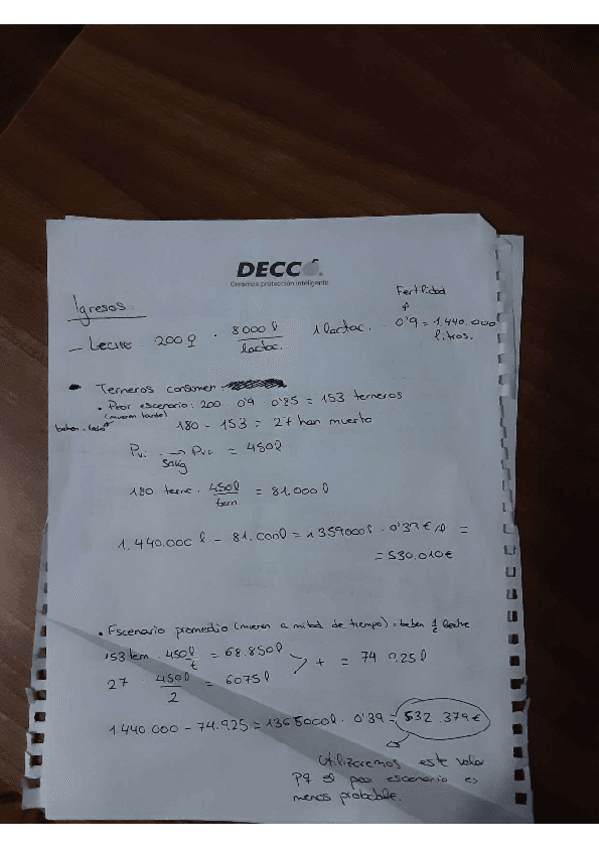 DECCO.
Creamos protección inteligente
Igresos:
Fertilidad
- Leche 200♀ · 8000 l / lactac. 1 lactac. · 0'9 = 1.440.000 litros.
Terneros consumen
• Peor escenario: 200 · 0'9 · 0'85 = 153 terneros
(mueren tarde)
beben todo
180 - 153 = 27 han muerto
→ = 450l
50kg
180 terne · 450l / tern = 81.000 l
1.440.000 l - 81.000l = 1359000l · 0'39 €/l =
= 530.010€
• Escenario promedio (mueren a mitad de tiempo) = beben 1/2 leche
153 tern · 450l / t = 68.850l
+ = 74.925l
27 · 450l / 2 = 6075l
1.440.000 - 74.925 = 1365000l · 0'39 = 532.379€
Utilizaremos este valor
pq el peor escenario es
menos probable.